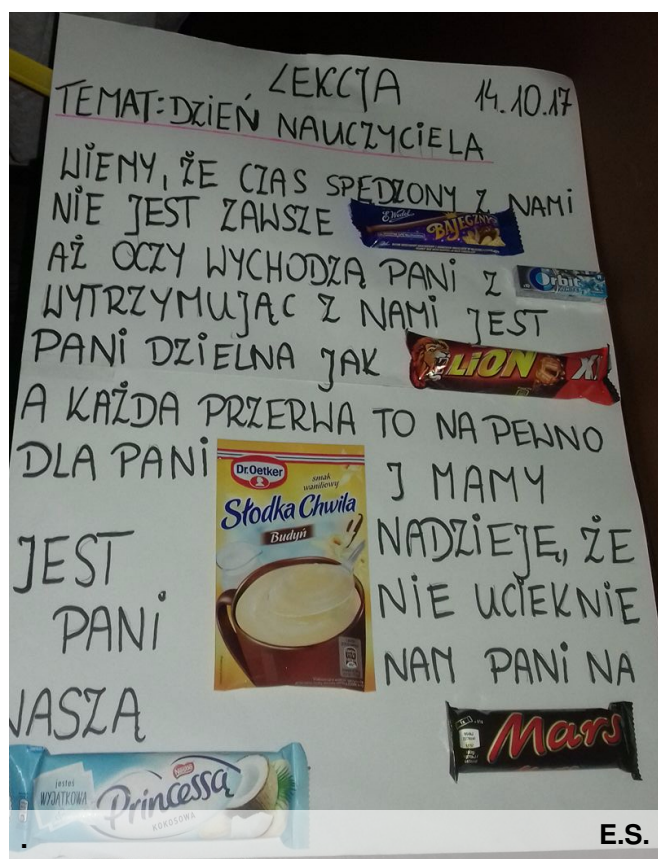 LEKCJA 14.10.17
TEMAT: DZIEŃ NAUCZYCIELA
WIEMY, ŻE CZAS SPĘDZONY Z NAMI
NIE JEST ZAWSZE E. Wedel BAJECZNY
AŻ OCZY WYCHODZĄ PANI Z Orbit
WYTRZYMUJĄC Z NAMI JEST
PANI DZIELNA JAK LION X
A KAŻDA PRZERWA TO NA PEWNO
DLA PANI
Dr. Oetker
smak
waniliowy
Słodka Chwila
Budyń
I MAMY
NADZIEJĘ, ŻE
NIE UCIEKNIE
NAM PANI NA
Mars
JEST
PANI
NASZĄ
jesteś
WYJĄTKOWA
Nestlé
Princessa
KOKOSOWA
. E.S.